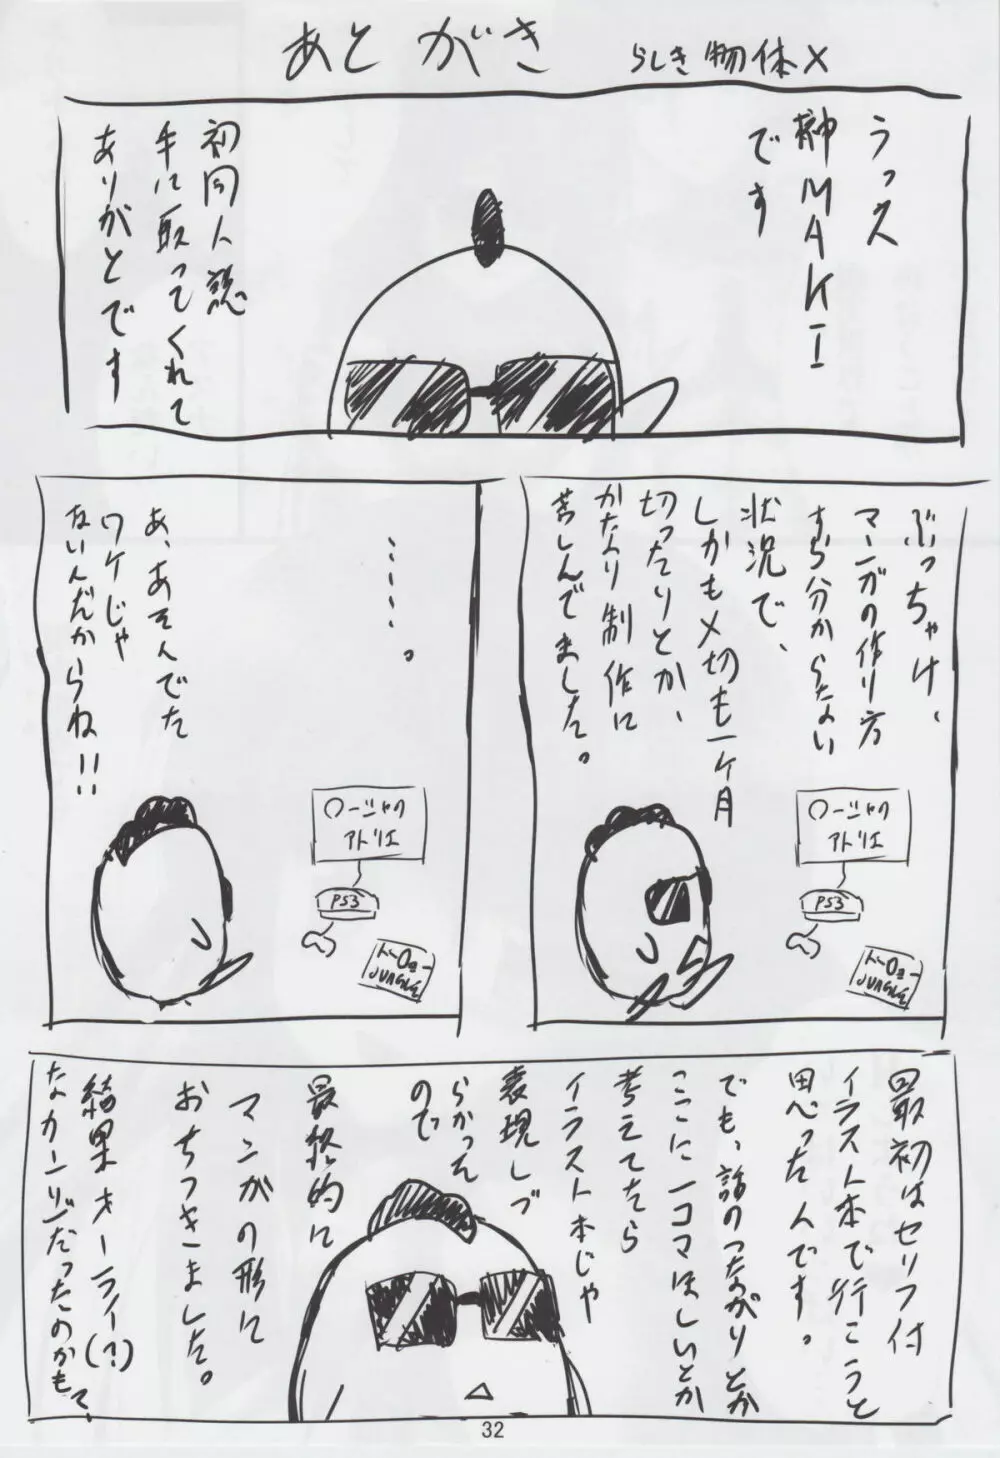 あとがき
らしき物体X
うっス
榊MAKI
です
初同人誌
手に取ってくれて
ありがとです
ぶっちゃけ、
マンガの作り方
すら分からない
状況で、
しかも〆切も一ケ月
切ったりとか、
かなり制作に
苦しんでました。
ロージャの
アトリエ
PS3
JUNGLE
・・・・・。
あ、あそんでた
ワケじゃ
ないんだからね!!
ロージャの
アトリエ
PS3
JUNGLE
最初はセリフ付
イラスト本で行こうと
思ったんです。
でも、話のつながりとか
ここに一コマほしいとか
考えてたら
イラスト本じゃ
表現しづ
らかった
ので
最終的に
マンガの形に
おちつきました。
結果オーライ(?)
なカンジだったのかもて、
32